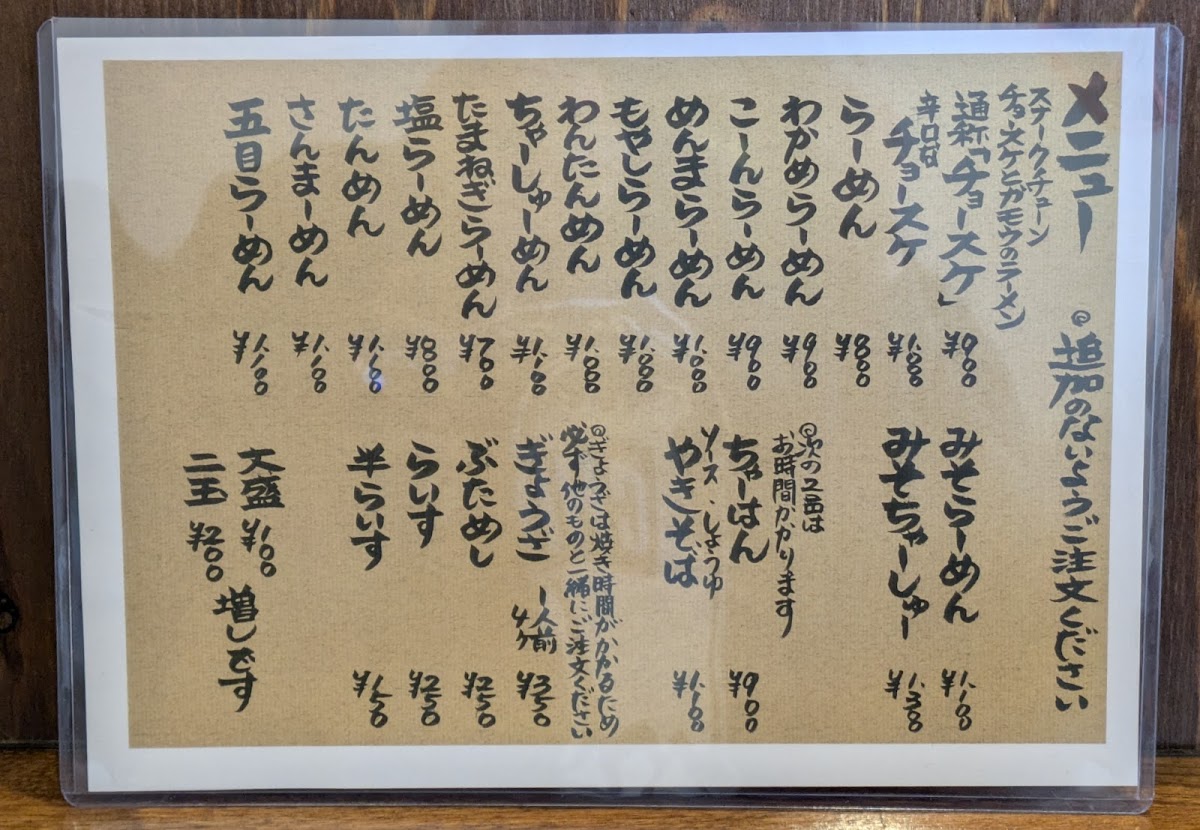 メニュー ◎追加のないようご注文ください
ステーク、チューン
チョースケニガモウのラーメン
通称「チョースケ」 ¥900
辛口
チョースケ ¥1.000
らーめん ¥800
わかめらーめん ¥900
こーんらーめん ¥900
めんまらーめん ¥1.000
もやしらーめん ¥1.000
わんたんめん ¥1.000
ちゃーしゅーめん ¥1.100
たまねぎらーめん ¥700
塩らーめん ¥800
たんめん ¥1.100
さんまーめん ¥1.100
五目らーめん ¥1.100
みそらーめん ¥1.100
みそちゃーしゅー ¥1.300
◎次の2品は
お時間かかります
ちゃーはん ¥900
ソイス、しょうゆ
やきそば ¥1.100
◎ぎょうざは焼き時間がかかるため
必ず他のものと一緒にご注文ください
ぎょうざ 一人前 4ケ ¥350
ぶためし ¥250
らいす ¥250
半らいす ¥150
大盛 ¥100
二玉 ¥200
増しです